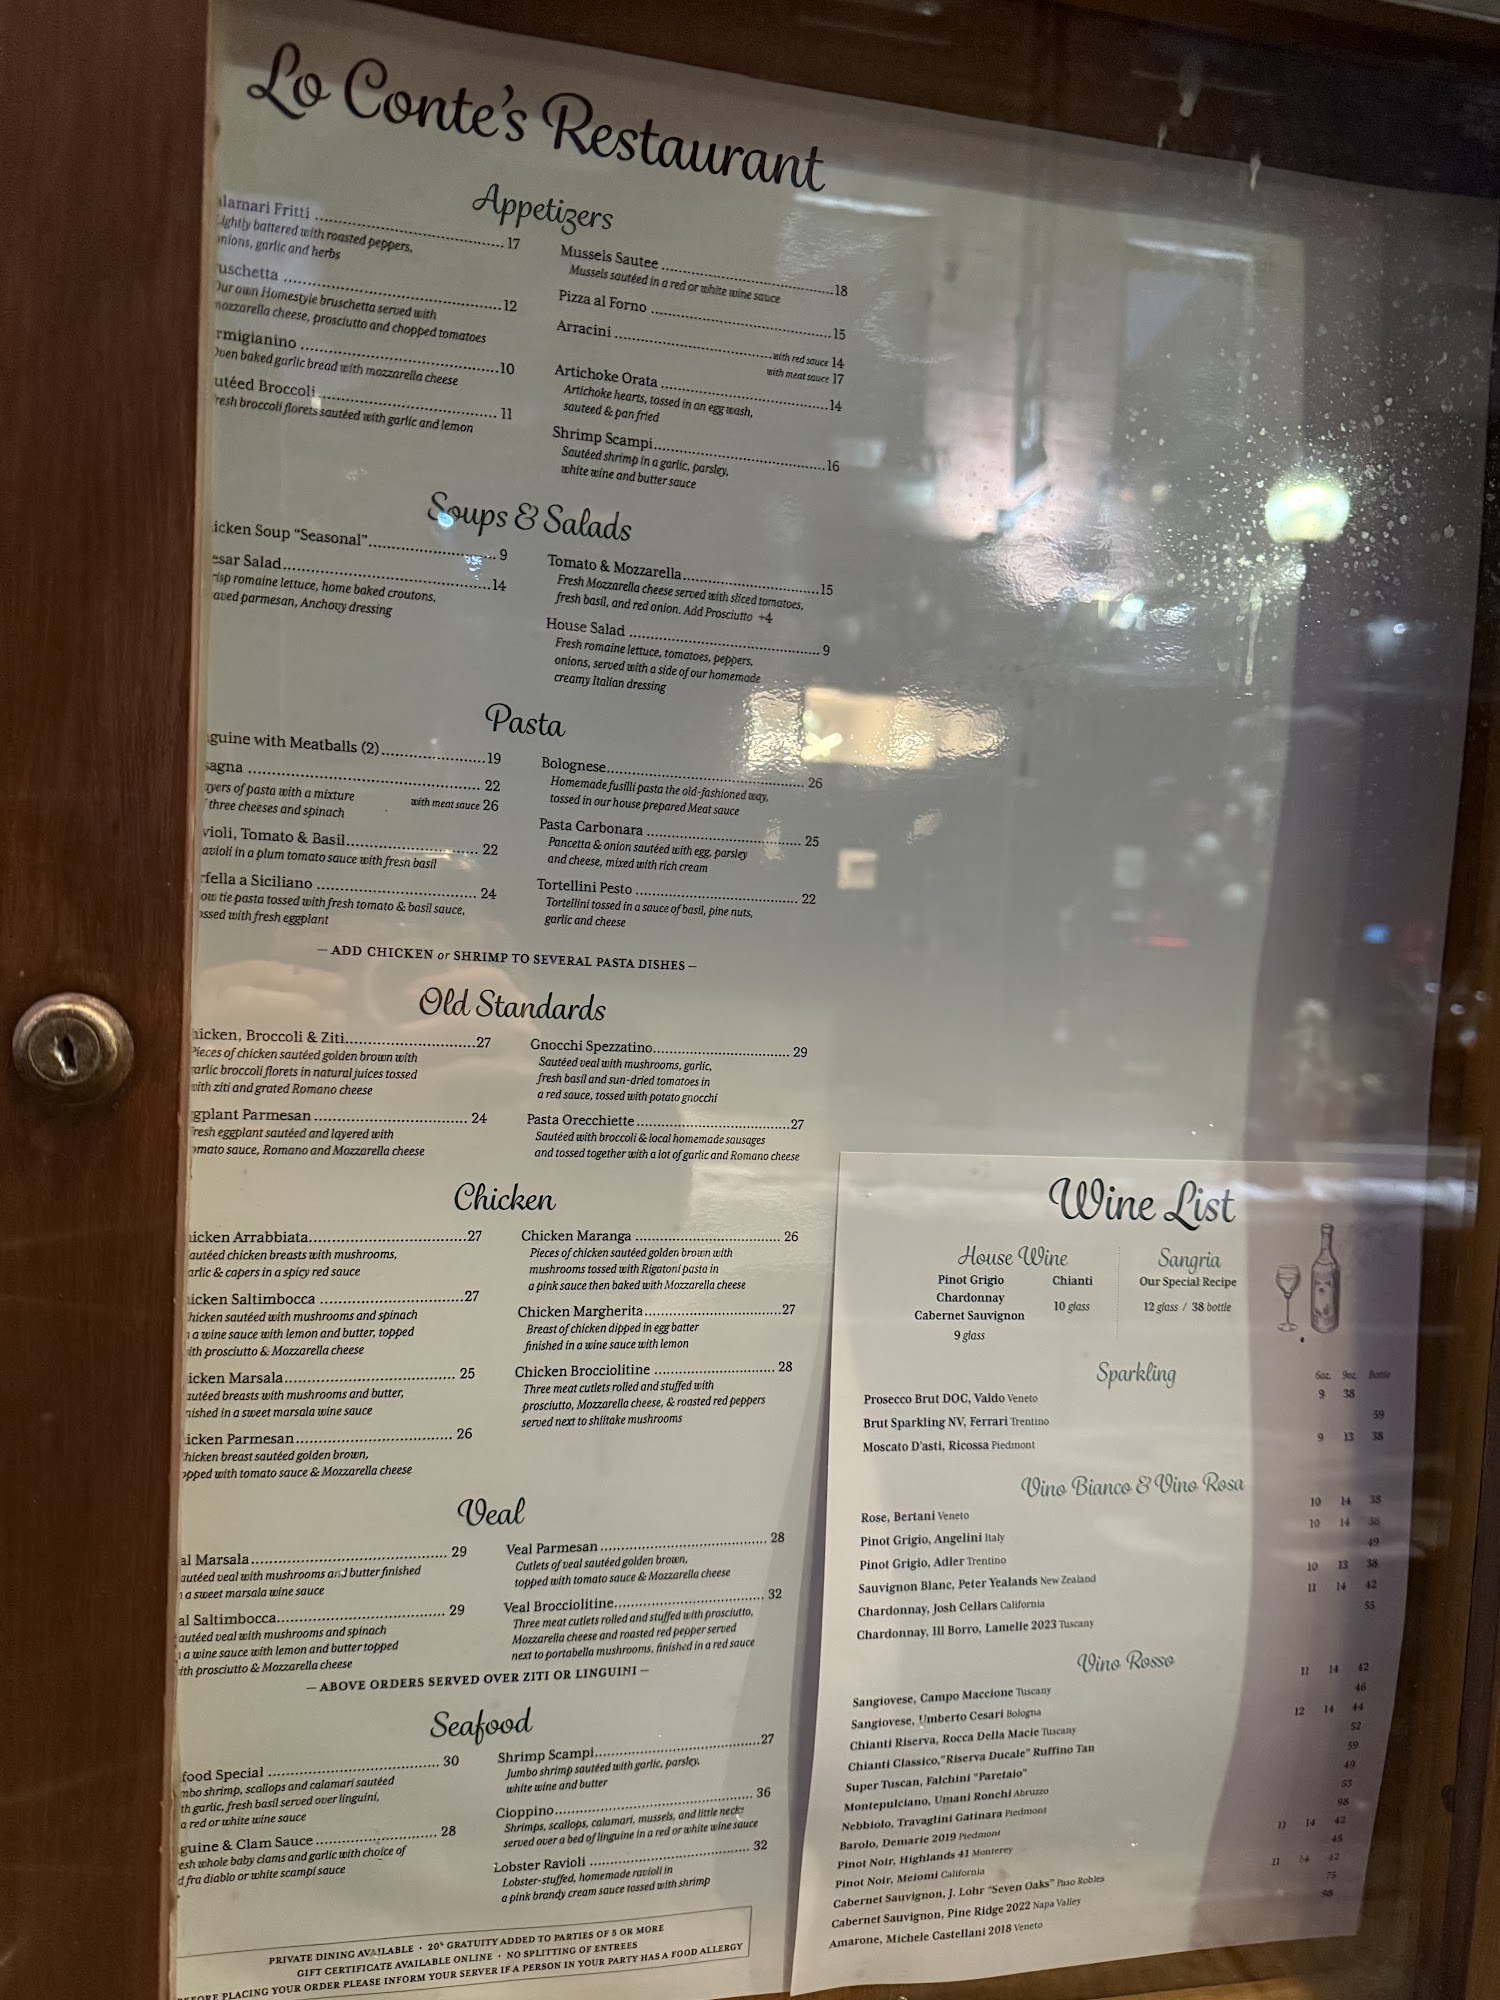 Lo Conte's Restaurant
Appetizers
alamari Fritti 17
Lightly battered with roasted peppers,
onions, garlic and herbs
uschetta 12
Our own Homestyle bruschetta served with
mozzarella cheese, prosciutto and chopped tomatoes
rmigianino 10
Oven baked garlic bread with mozzarella cheese
utéed Broccoli 11
resh broccoli florets sautéed with garlic and lemon
Mussels Sautee 18
Mussels sautéed in a red or white wine sauce
Pizza al Forno 15
Arracini with red sauce 14
with meat sauce 17
Artichoke Orata 14
Artichoke hearts, tossed in an egg wash,
sauteed & pan fried
Shrimp Scampi 16
Sautéed shrimp in a garlic, parsley,
white wine and butter sauce
Soups & Salads
icken Soup “Seasonal” 9
esar Salad 14
risp romaine lettuce, home baked croutons,
aved parmesan, Anchovy dressing
Tomato & Mozzarella 15
Fresh Mozzarella cheese served with sliced tomatoes,
fresh basil, and red onion. Add Prosciutto +4
House Salad 9
Fresh romaine lettuce, tomatoes, peppers,
onions, served with a side of our homemade
creamy Italian dressing
Pasta
guine with Meatballs (2) 19
sagna 22
ayers of pasta with a mixture with meat sauce 26
f three cheeses and spinach
violi, Tomato & Basil 22
avioli in a plum tomato sauce with fresh basil
rfella a Siciliano 24
ow tie pasta tossed with fresh tomato & basil sauce,
ossed with fresh eggplant
Bolognese 26
Homemade fusilli pasta the old-fashioned way,
tossed in our house prepared Meat sauce
Pasta Carbonara 25
Pancetta & onion sautéed with egg, parsley
and cheese, mixed with rich cream
Tortellini Pesto 22
Tortellini tossed in a sauce of basil, pine nuts,
garlic and cheese
— ADD CHICKEN or SHRIMP TO SEVERAL PASTA DISHES —
Old Standards
hicken, Broccoli & Ziti 27
Pieces of chicken sautéed golden brown with
garlic broccoli florets in natural juices tossed
with ziti and grated Romano cheese
ggplant Parmesan 24
resh eggplant sautéed and layered with
omato sauce, Romano and Mozzarella cheese
Gnocchi Spezzatino 29
Sautéed veal with mushrooms, garlic,
fresh basil and sun-dried tomatoes in
a red sauce, tossed with potato gnocchi
Pasta Orecchiette 27
Sautéed with broccoli & local homemade sausages
and tossed together with a lot of garlic and Romano cheese
Chicken
icken Arrabbiata 27
autéed chicken breasts with mushrooms,
arlic & capers in a spicy red sauce
icken Saltimbocca 27
hicken sautéed with mushrooms and spinach
n a wine sauce with lemon and butter, topped
ith prosciutto & Mozzarella cheese
icken Marsala 25
autéed breasts with mushrooms and butter,
nished in a sweet marsala wine sauce
icken Parmesan 26
hicken breast sautéed golden brown,
opped with tomato sauce & Mozzarella cheese
Chicken Maranga 26
Pieces of chicken sautéed golden brown with
mushrooms tossed with Rigatoni pasta in
a pink sauce then baked with Mozzarella cheese
Chicken Margherita 27
Breast of chicken dipped in egg batter
finished in a wine sauce with lemon
Chicken Brocciolitine 28
Three meat cutlets rolled and stuffed with
prosciutto, Mozzarella cheese, & roasted red peppers
served next to shiitake mushrooms
Veal
al Marsala 29
autéed veal with mushrooms and butter finished
n a sweet marsala wine sauce
al Saltimbocca 29
autéed veal with mushrooms and spinach
n a wine sauce with lemon and butter topped
ith prosciutto & Mozzarella cheese
Veal Parmesan 28
Cutlets of veal sautéed golden brown,
topped with tomato sauce & Mozzarella cheese
Veal Brocciolitine 32
Three meat cutlets rolled and stuffed with prosciutto,
Mozzarella cheese and roasted red pepper served
next to portabella mushrooms, finished in a red sauce
— ABOVE ORDERS SERVED OVER ZITI OR LINGUINI —
Seafood
food Special 30
mbo shrimp, scallops and calamari sautéed
th garlic, fresh basil served over linguini,
a red or white wine sauce
guine & Clam Sauce 28
esh whole baby clams and garlic with choice of
d fra diablo or white scampi sauce
Shrimp Scampi 27
Jumbo shrimp sautéed with garlic, parsley,
white wine and butter
Cioppino 36
Shrimps, scallops, calamari, mussels, and little necks
served over a bed of linguine in a red or white wine sauce
Lobster Ravioli 32
Lobster-stuffed, homemade ravioli in
a pink brandy cream sauce tossed with shrimp
PRIVATE DINING AVAILABLE · 20% GRATUITY ADDED TO PARTIES OF 5 OR MORE
GIFT CERTIFICATE AVAILABLE ONLINE · NO SPLITTING OF ENTREES
BEFORE PLACING YOUR ORDER PLEASE INFORM YOUR SERVER IF A PERSON IN YOUR PARTY HAS A FOOD ALLERGY
Wine List
House Wine
Pinot Grigio
Chardonnay
Cabernet Sauvignon
9 glass
Chianti
10 glass
Sangria
Our Special Recipe
12 glass / 38 bottle
Sparkling
6oz. 9oz. Bottle
Prosecco Brut DOC, Valdo Veneto 9 38
Brut Sparkling NV, Ferrari Trentino 59
Moscato D'asti, Ricossa Piedmont 9 13 38
Vino Bianco & Vino Rosa
Rose, Bertani Veneto 10 14 38
Pinot Grigio, Angelini Italy 10 14 38
Pinot Grigio, Adler Trentino 49
Sauvignon Blanc, Peter Yealands New Zealand 10 13 38
Chardonnay, Josh Cellars California 11 14 42
Chardonnay, Ill Borro, Lamelle 2023 Tuscany 55
Vino Rosso
Sangiovese, Campo Maccione Tuscany 11 14 42
Sangiovese, Umberto Cesari Bologna 46
Chianti Riserva, Rocca Della Macie Tuscany 12 14 44
Chianti Classico,"Riserva Ducale" Ruffino Tan 52
Super Tuscan, Falchini "Paretaio" 59
Montepulciano, Umani Ronchi Abruzzo 49
Nebbiolo, Travaglini Gatinara Piedmont 53
Barolo, Demarie 2019 Piedmont 98
Pinot Noir, Highlands 41 Monterey 11 14 42
Pinot Noir, Meiomi California 45
Cabernet Sauvignon, J. Lohr "Seven Oaks" Paso Robles 11 14 42
Cabernet Sauvignon, Pine Ridge 2022 Napa Valley 75
Amarone, Michele Castellani 2018 Veneto 98